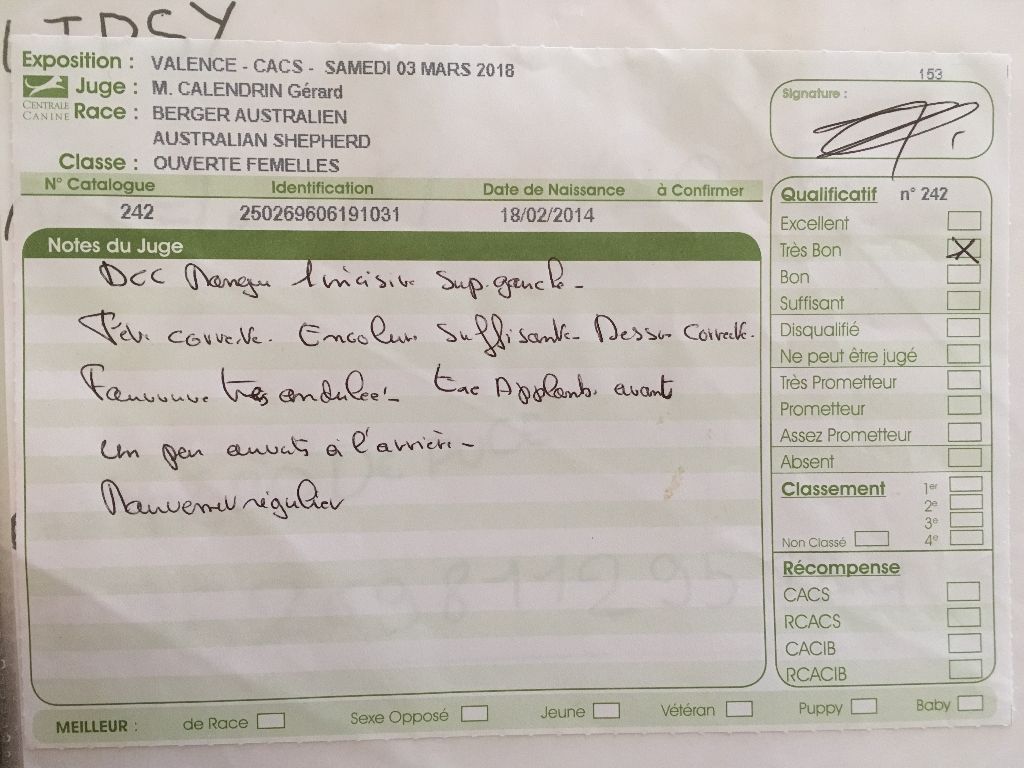 Exposition : VALENCE - CACS - SAMEDI 03 MARS 2018
153
CENTRALE CANINE
Juge : M. CALENDRIN Gérard
Race : BERGER AUSTRALIEN
AUSTRALIAN SHEPHERD
Classe : OUVERTE FEMELLES
Signature :
N° Catalogue Identification Date de Naissance à Confirmer
242 250269606191031 18/02/2014
Notes du Juge
Manque 1 incisive Sup. gauche -
Tête correcte. Encolure suffisante - Dessus correcte.
Fourrure très ondulée - Applombs avant
un peu ouverts à l'arrière -
Mouvement régulier
Qualificatif n° 242
Excellent
Très Bon X
Bon
Suffisant
Disqualifié
Ne peut être jugé
Très Prometteur
Prometteur
Assez Prometteur
Absent
Classement 1er
2e
3e
Non Classé 4e
Récompense
CACS
RCACS
CACIB
RCACIB
MEILLEUR : de Race Sexe Opposé Jeune Vétéran Puppy Baby